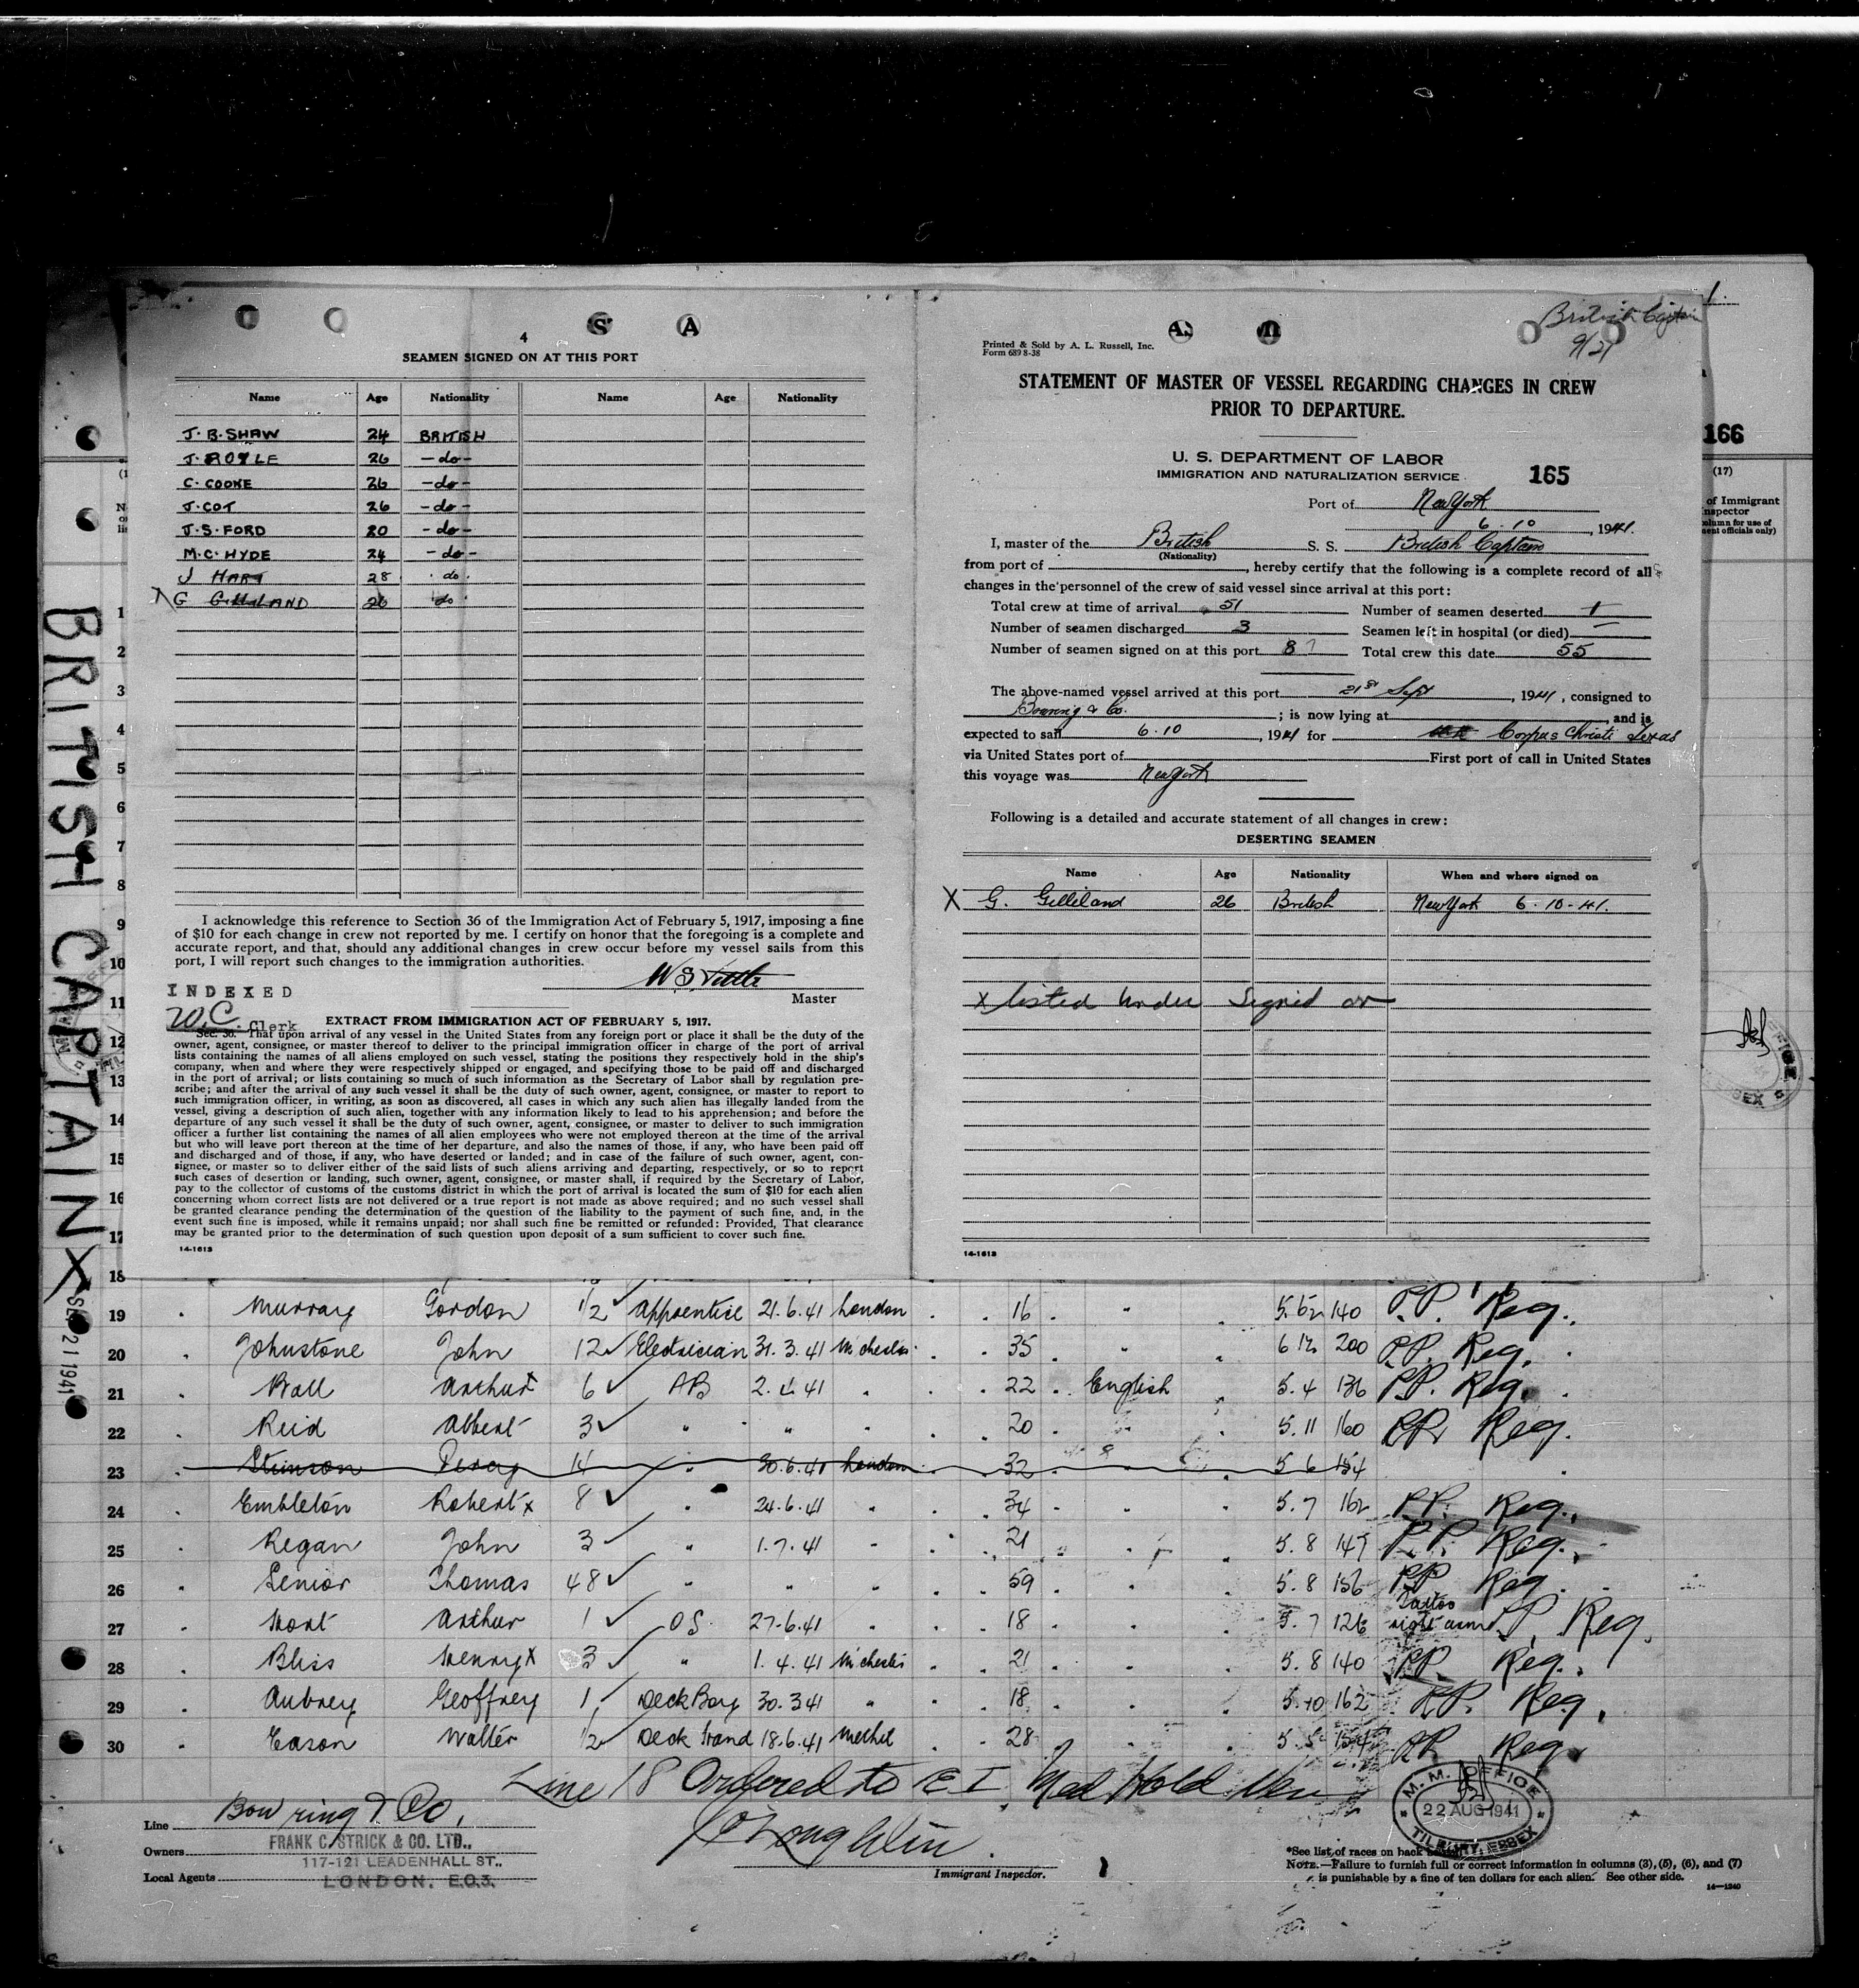 4
SEAMEN SIGNED ON AT THIS PORT
Name Age Nationality Name Age Nationality
J. B. SHAW 24 BRITISH
J. ROYLE 26 -do-
C. COOKE 26 -do-
J. COT 26 -do-
J. S. FORD 20 -do-
M. C. HYDE 24 -do-
J HART 28 do
X G GILLILAND 26 do
I acknowledge this reference to Section 36 of the Immigration Act of February 5, 1917, imposing a fine
of $10 for each change in crew not reported by me. I certify on honor that the foregoing is a complete and
accurate report, and that, should any additional changes in crew occur before my vessel sails from this
port, I will report such changes to the immigration authorities.
Master
INDEXED
W.C. Clerk
EXTRACT FROM IMMIGRATION ACT OF FEBRUARY 5, 1917.
Sec. 36. That upon arrival of any vessel in the United States from any foreign port or place it shall be the duty of the
owner, agent, consignee, or master thereof to deliver to the principal immigration officer in charge of the port of arrival
lists containing the names of all aliens employed on such vessel, stating the positions they respectively hold in the ship's
company, when and where they were respectively shipped or engaged, and specifying those to be paid off and discharged
in the port of arrival; or lists containing so much of such information as the Secretary of Labor shall by regulation pre-
scribe; and after the arrival of any such vessel it shall be the duty of such owner, agent, consignee, or master to report to
such immigration officer, in writing, as soon as discovered, all cases in which any such alien has illegally landed from the
vessel, giving a description of such alien, together with any information likely to lead to his apprehension; and before the
departure of any such vessel it shall be the duty of such owner, agent, consignee, or master to deliver to such immigration
officer a further list containing the names of all alien employees who were not employed thereon at the time of the arrival
but who will leave port thereon at the time of her departure, and also the names of those, if any, who have been paid off
and discharged and of those, if any, who have deserted or landed; and in case of the failure of such owner, agent, con-
signee, or master so to deliver either of the said lists of such aliens arriving and departing, respectively, or so to report
such cases of desertion or landing, such owner, agent, consignee, or master shall, if required by the Secretary of Labor,
pay to the collector of customs of the customs district in which the port of arrival is located the sum of $10 for each alien
concerning whom correct lists are not delivered or a true report is not made as above required; and no such vessel shall
be granted clearance pending the determination of the question of the liability to the payment of such fine, and, in the
event such fine is imposed, while it remains unpaid; nor shall such fine be remitted or refunded: Provided, That clearance
may be granted prior to the determination of such question upon deposit of a sum sufficient to cover such fine.
14-1613
British Captain
9/21
Printed & Sold by A. L. Russell, Inc.
Form 689 8-38
STATEMENT OF MASTER OF VESSEL REGARDING CHANGES IN CREW
PRIOR TO DEPARTURE.
U. S. DEPARTMENT OF LABOR
IMMIGRATION AND NATURALIZATION SERVICE
165
Port of New York
6.10, 1941.
I, master of the British S. S. British Captain
(Nationality)
from port of , hereby certify that the following is a complete record of all
changes in the personnel of the crew of said vessel since arrival at this port:
Total crew at time of arrival 51 Number of seamen deserted 1
Number of seamen discharged 3 Seamen left in hospital (or died) —
Number of seamen signed on at this port 8 Total crew this date 55
The above-named vessel arrived at this port 21st Sept, 1941, consigned to
Bowring & Co. ; is now lying at , and is
expected to sail 6.10, 1941 for Corpus Christi Texas
via United States port of First port of call in United States
this voyage was New York
Following is a detailed and accurate statement of all changes in crew:
DESERTING SEAMEN
Name Age Nationality When and where signed on
X G. Gilliland 26 British New York 6-10-41.
x listed under Signed on
14-1613
166
(17)
of Immigrant
Inspector
BRITISH CAPTAIN X
SEP 21 1941
1
2
3
4
5
6
7
8
9
10
11
12
13
14
15
16
17
18
19 Murray Gordon 1/2 Apprentice 21.6.41 London 16 " 5.6½ 140 P.P. Reg.
20 Johnstone John 12 Electrician 31.3.41 M'chester 35 " 6 1½ 200 P.P. Reg.
21 Ball Arthur 6 AB 2.4.41 " 22 English 5.4 136 P.P. Reg.
22 Reid Albert 3 " " " 20 5.11 160 P.P. Reg.
23 Stimson Percy 14 " 30.6.41 London 32 " 5 6 154
24 Embleton Robert x 8 " 24.6.41 " 34 " 5.7 162 P.P. Reg.
25 Regan John 3 " 1.7.41 " 21 " 5.8 147 P.P. Reg.
26 Senior Thomas 48 " " " 59 " 5.8 156 P.P. Reg.
27 Mont Arthur 1 OS. 27.6.41 " 18 " 5.7 126 Tattoo right arm P.P. Reg.
28 Bliss Henry x 3 " 1.4.41 M'chester 21 " 5.8 140 P.P. Reg.
29 Aubrey Geoffrey 1 Deck Boy 30.3.41 " 18 " 5.10 162 P.P. Reg.
30 Eason Walter 1/2 Deck Hand 18.6.41 Methil 28 " 5.5 154 P.P. Reg.
Line 18 Ordered to E I Med Hold
Line Bowring & Co,
Owners FRANK C. STRICK & CO. LTD.,
117-121 LEADENHALL ST.,
Local Agents LONDON, E.C.3.
O'Loughlin
Immigrant Inspector.
M.M. OFFICE
22 AUG 1941
TILBURY, ESSEX
*See list of races on back
NOTE.—Failure to furnish full or correct information in columns (3), (5), (6), and (7)
is punishable by a fine of ten dollars for each alien. See other side.
14-1240